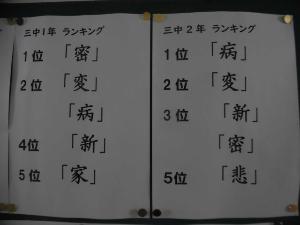 三中1年 ランキング
1位 「密」
2位 「変」
「病」
4位 「新」
5位 「家」
三中2年 ランキング
1位 「病」
2位 「変」
3位 「新」
「密」
5位 「悲」